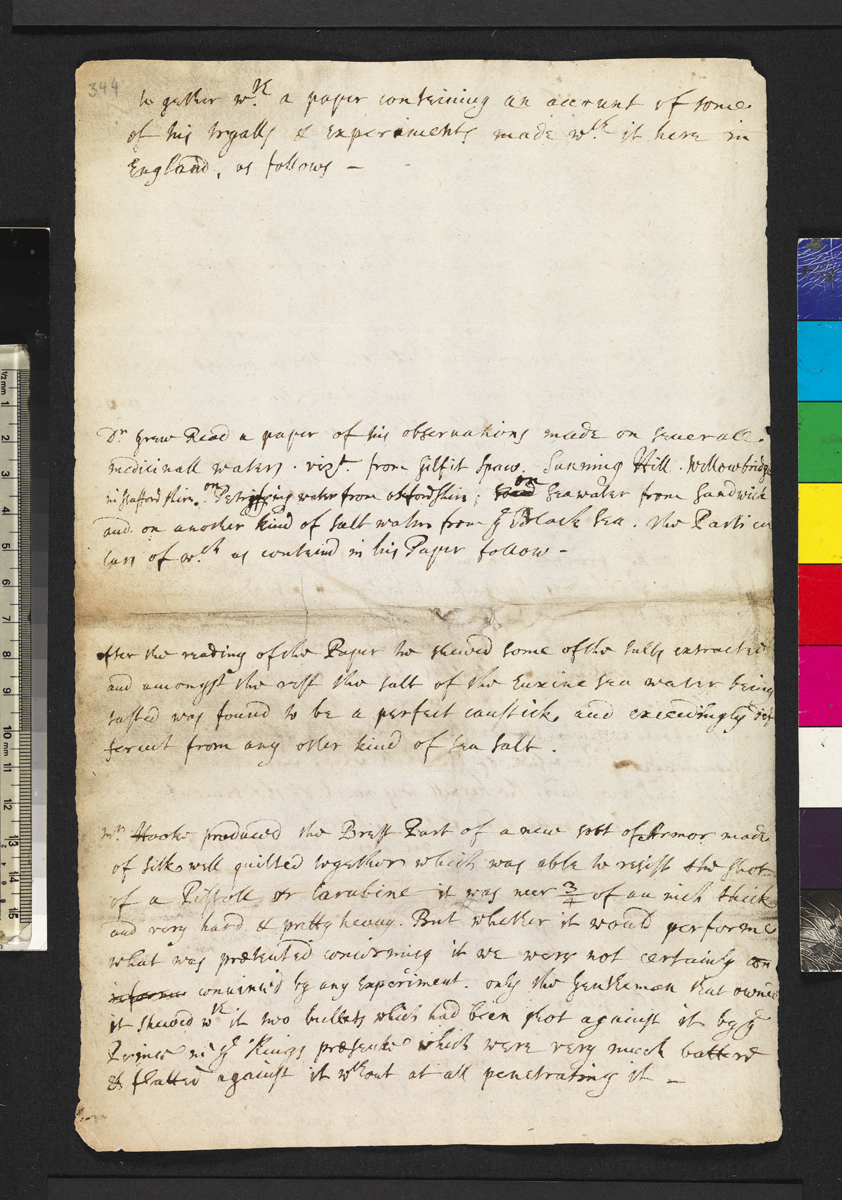 344
together wch a paper conteining an account of some
of his tryalls & experiments made wth it here in
England, as follows —
Dr Grew Read a paper of his observations made on severall
medicinall waters. vizt. from Gilsit spaw. Sunning Hill. Willowbridge
in staffordshire. on Petryfying water from oxfordshire; on Seawater from Sandwich
and on another kind of salt water from ye Black Sea. the Particu
lars of wch as conteind in his Paper follow —
After the reading of the Paper he shewed some of the salts extracted
and amongst the rest the salt of the Euxine sea water being
tasted was found to be a perfect caustick, and exceedingly dif
ferent from any other kind of sea salt.
Mr Hooke produced the Brest Part of a new sort of Armor made
of silk well quilted together which was able to resist the shot
of a Pistoll or Carabine it was neer 3/4 of an inch thick
and very hard & pretty heavy. But whether it would performe
what was presented concerning it we were not certainly con
informd convinced by any Experiment. only the Gentleman that owned
it shewed wth it two bullets which had been shot against it by ye
Prince in ye Kings presence which were very much batterd
& flatted against it wthout at all penetrating it —